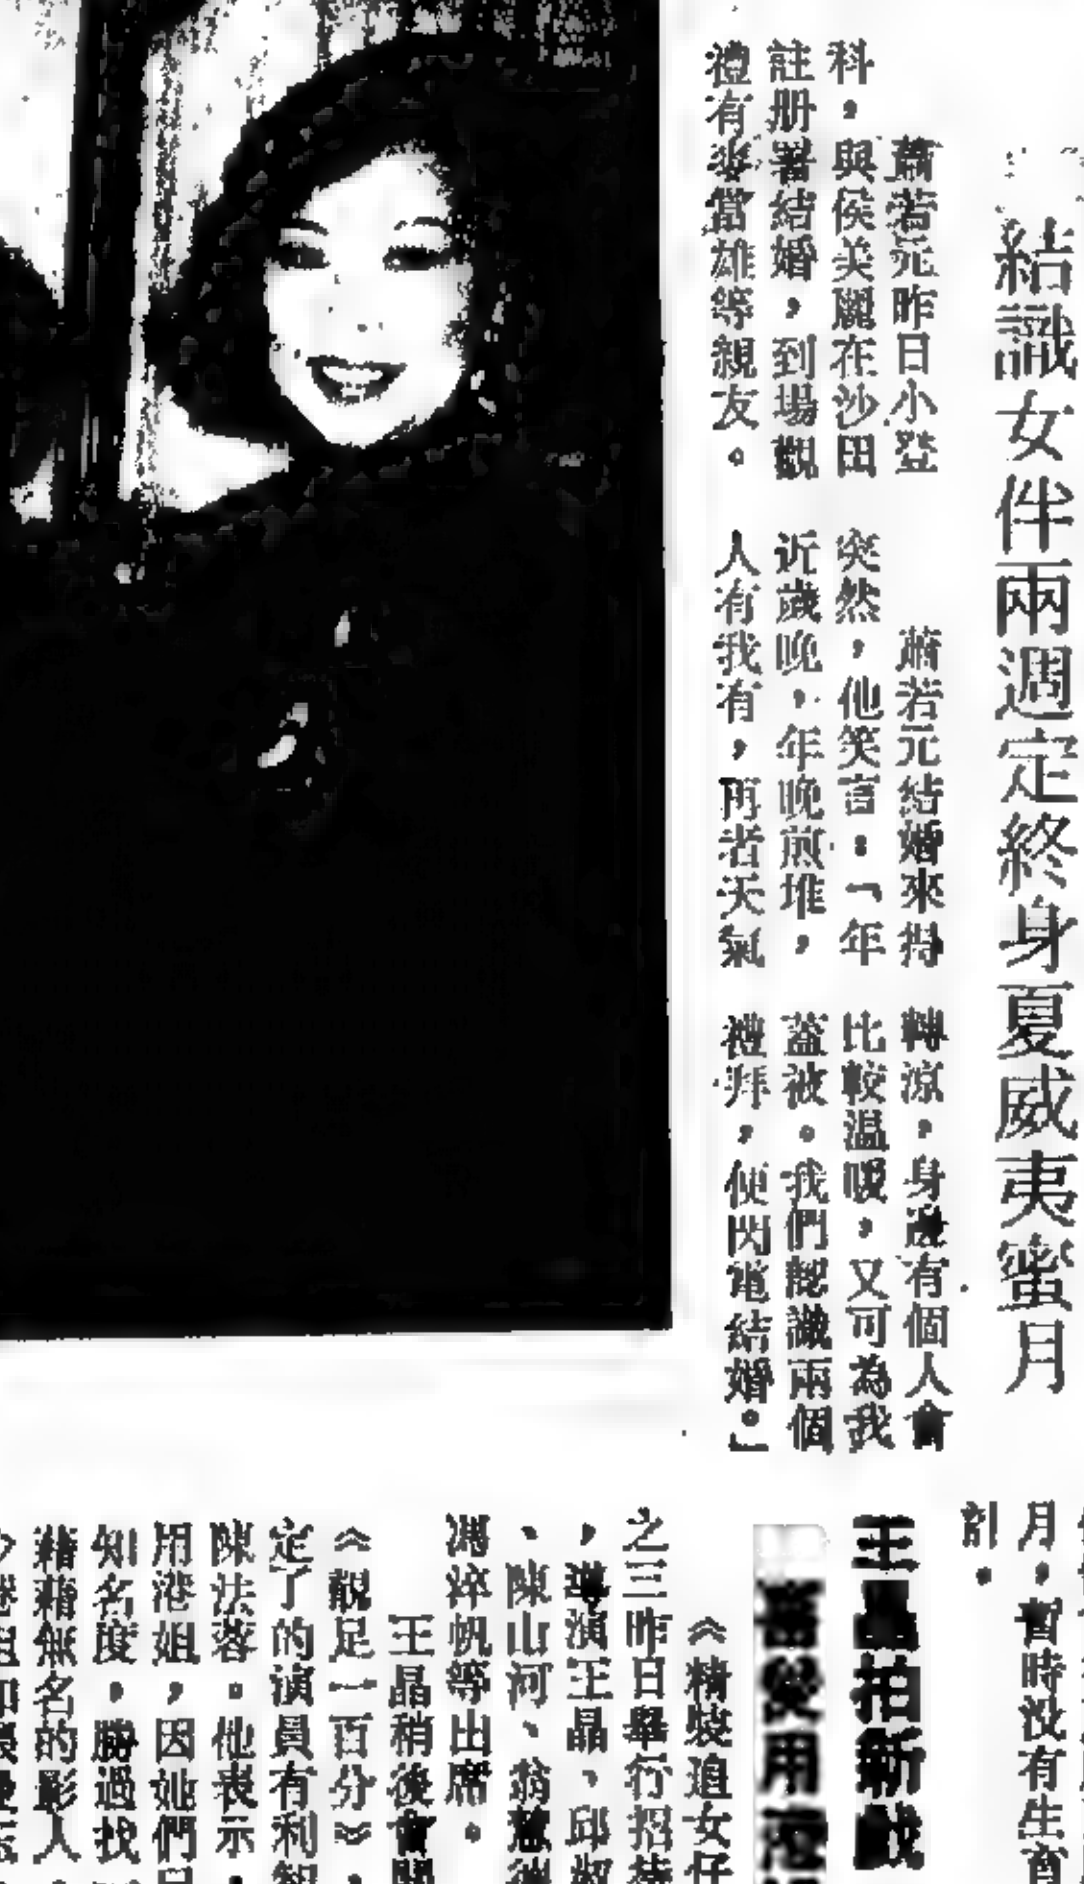 結識女伴兩週定終身夏威夷蜜月
蕭若元昨日小登
科，與侯美麗在沙田
註册署結婚，到場觀
禮有麥當雄等親友。
蕭若元結婚來得
突然，他笑言：「年
近歲晚，年晚煎堆，
人有我有，再者天氣
轉涼，身邊有個人會
比較温暖，又可為我
蓋被。我們認識兩個
禮拜，便閃電結婚。」
月，暫時没有生育
計。
王晶拍新戲
喜愛用港
《精裝追女仔
之三昨日舉行招待
，導演王晶、邱淑
、陳山河、翁慧德
馮淬帆等出席。
王晶稍後會開
《靚足一百分》，
定了的演員有利智
陳法蓉。他表示，
用港姐，因她們
知名度，勝過找
藉藉無名的影人